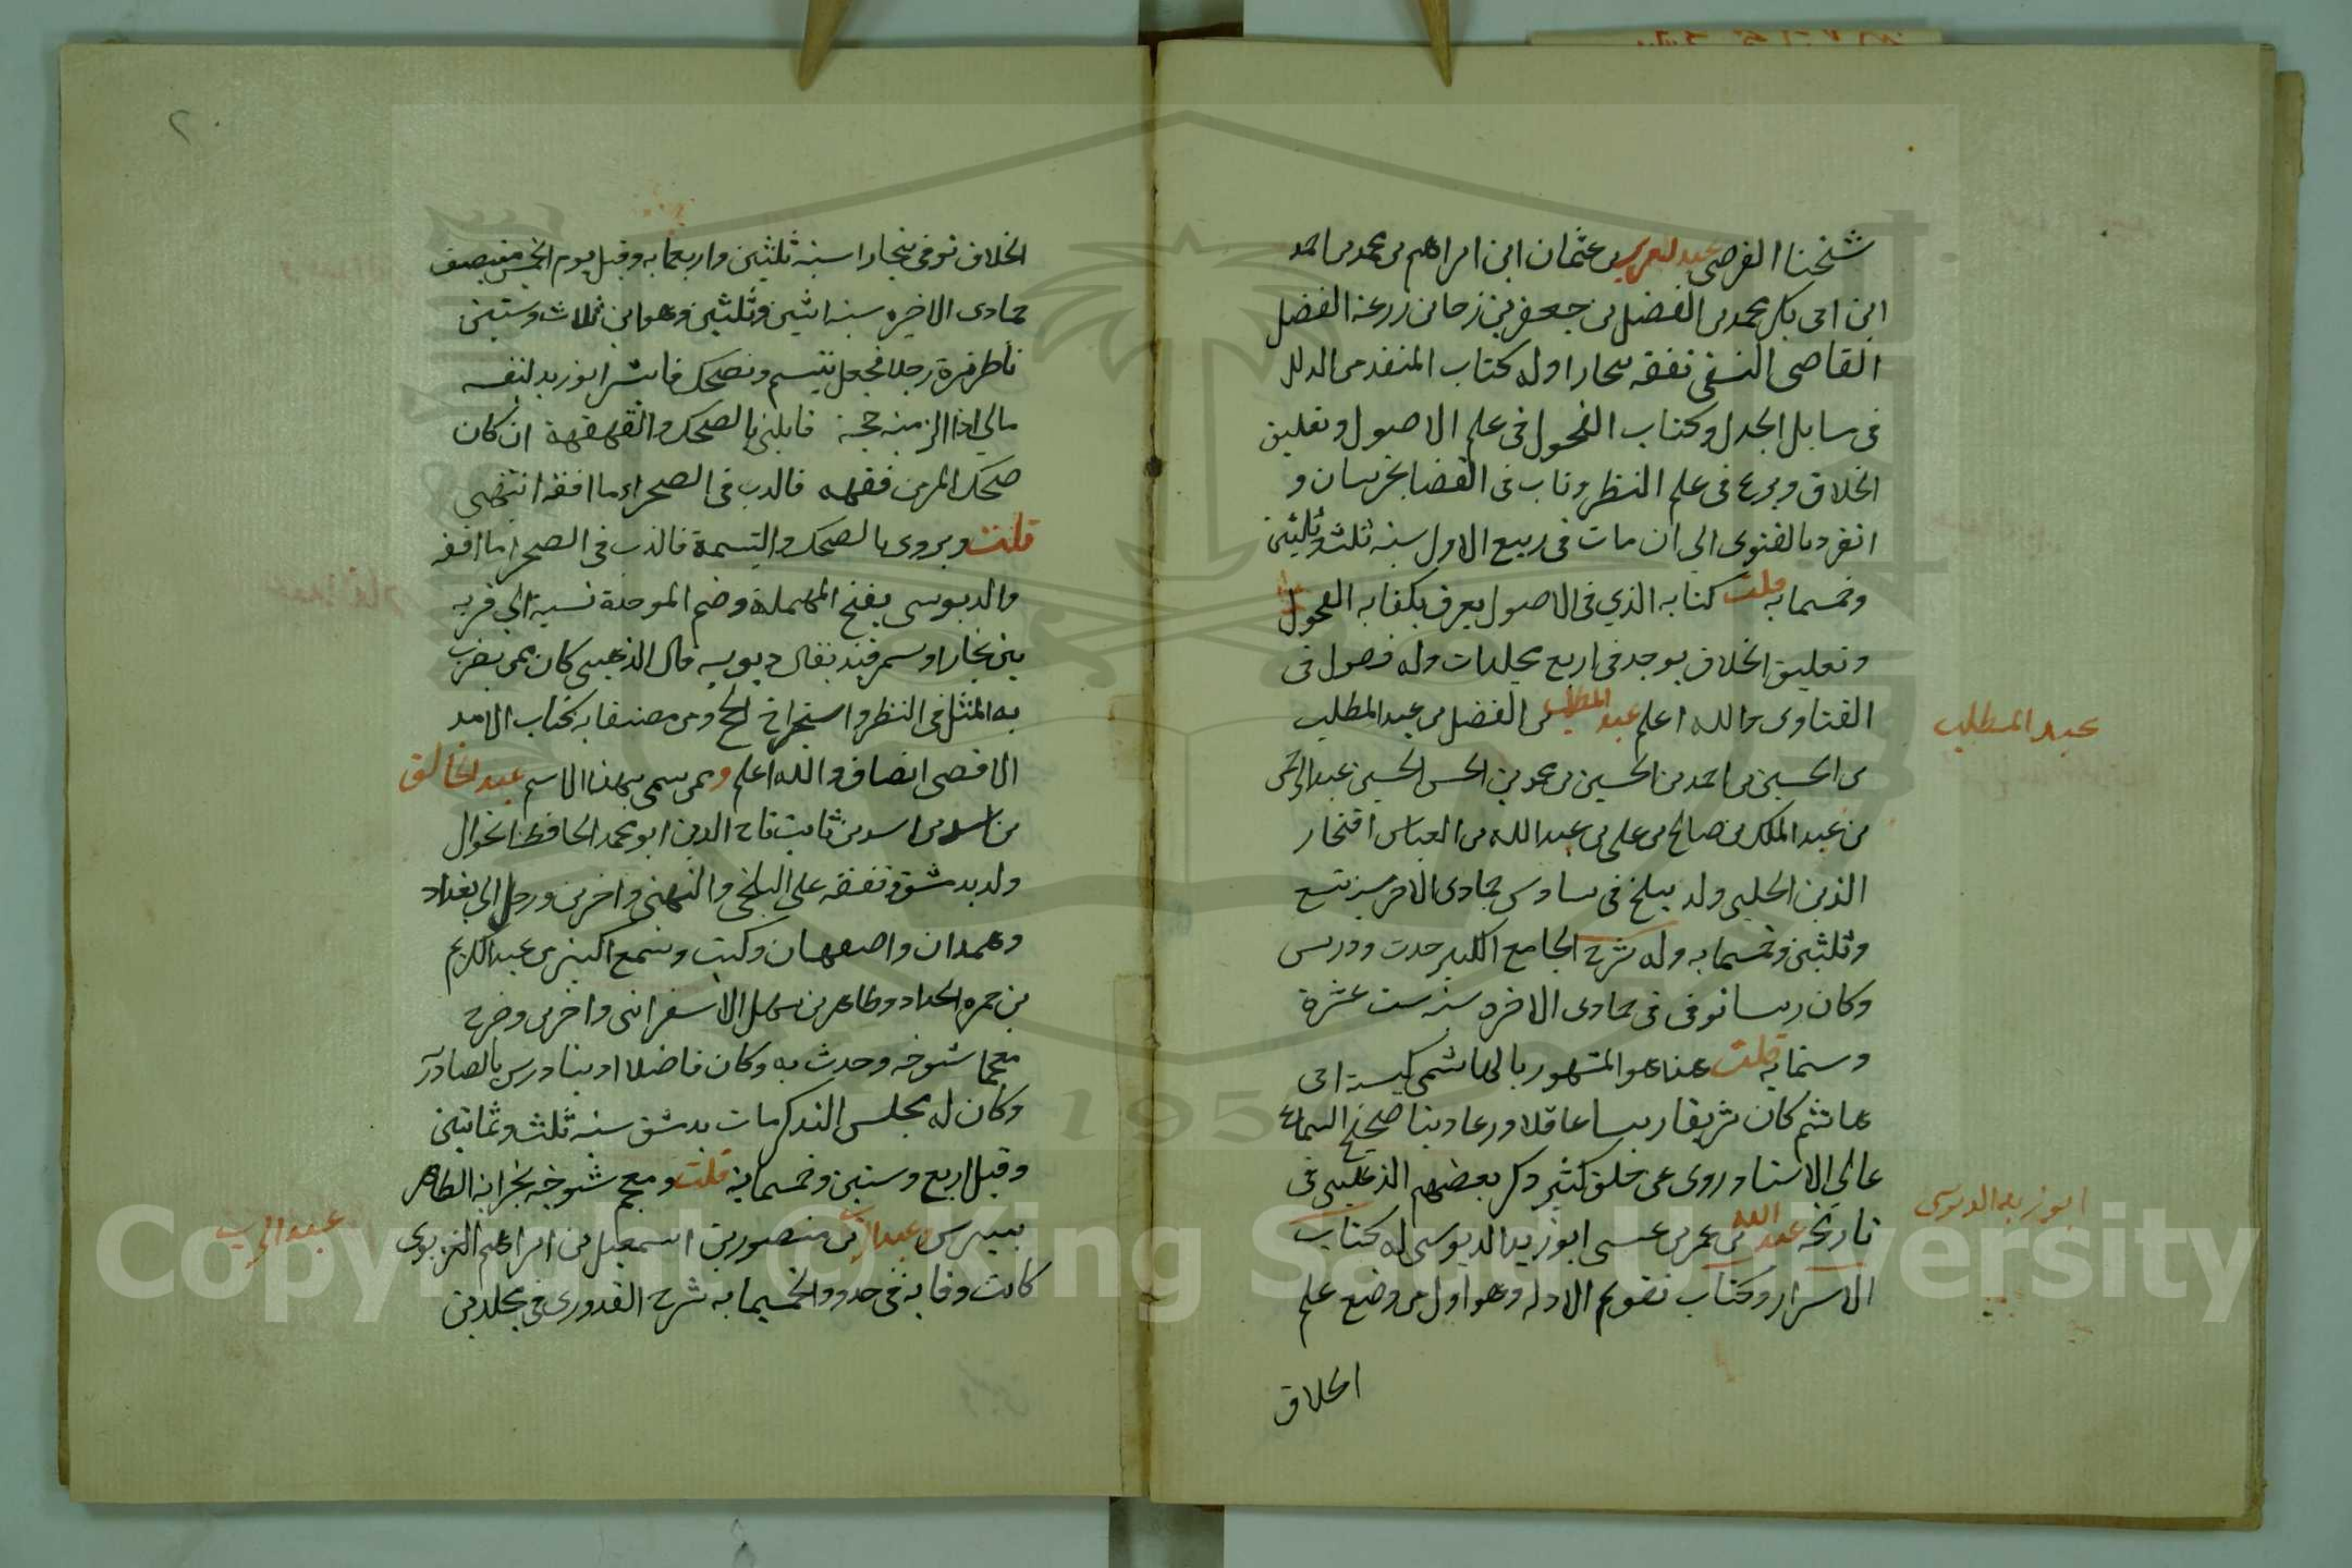 شيخنا الفرضى عبد العزيز بن عثمان ابن ابراهيم بن محمد بن احمد
ابن ابى بكر محمد بن الفضل بن جعفر بن زرعة الفضل
القاضى النسفى تفقه ببخارا وله كتاب المنقذ من الدلل
فى مسايل الجدل وكتاب الفحول فى علم الاصول وتعليق
الخلاف وبرع فى علم النظر وناب فى القضا بخرسان و
انفرد بالفتوى الى ان مات فى ربيع الاول سنة ثلث وثلثين
وخمسمايه قلت كتابه الذي فى الاصول يعرف بكفايه الفحول
وتعليق الخلاف يوجد فى اربع مجلدات وله فصول فى
الفتاوى والله اعلم عبد المطلب بن الفضل بن عبد المطلب
عبد المطلب
بن الحسين بن احمد بن الحسين بن محمد بن الحسن الحسين عبد الرحمن
بن عبد الملك بن صالح بن على بن عبد الله بن العباس افتخار
الدين الحلبى ولد ببلخ فى سادس جمادى الاخر سنة تسع
وثلثين وخمسمايه وله شرح الجامع الكبير حدث ودرس
وكان رئيسا توفى فى جمادى الاخره سنة ست عشرة
وستمايه قلت هذا هو المشهور بالهاشمى كنيته ابى
هاشم كان شريفا رئيسا عاقلا ورعا دينا صحيح السماع
عالي الاسناد روى عن خلق كثير ذكر بعضهم الذهبى فى
تاريخه عبد الله بن عمر بن عيسى ابو زيد الدبوسى له كتاب
ابو زيد الدبوسى
الاسرار وكتاب تقويم الادله وهو اول من وضع علم
الخلاق
٢٠
الخلاف توفى ببخارا سنة ثلثين واربعمايه وقيل يوم الخميس منتصف
جمادى الاخره سنة اثنين وثلثين وهو ابن ثلاث وستين
ناظر مرة رجلا فجعل يتبسم ويضحك فانشد ابو زيد لنفسه
مالي اذا الزمته حجة قابلنى بالضحك والقهقهة ان كان
ضحك المرء من فقهه فالدب فى الصحراء ما افقه انتهى
قلت ويروى بالضحك والتبسمة فالدب فى الصحرا ما افقه
والدبوسى بفتح المهملة وضم الموحدة نسبة الى قريه
بين بخارا وسمرقند يقال دبوسه قال الذهبى كان ممن يضرب
به المثل فى النظر واستخراج الحجج ومن مصنفاته كتاب الامد
الاقصى ايضا والله اعلم وممن سمى بهذا الاسم عبد الخالق
بن اسد بن ثابت تاج الدين ابو محمد الحافظ الجوال
ولد بدمشق تفقه على البلخى واخرين ورحل الى بغداد
وهمدان واصفهان وكتب وسمع الكثير من عبد الكريم
بن حمزه الحداد وطاهر بن سهل الاسفرائنى واخرين وخرج
معجما لشيوخه وحدث به وكان فاضلا اديبا درس بالصادرية
وكان له مجلس التذكر مات بدمشق سنة ثلث وثمانين
وقيل اربع وستين وخمسماية قلت ومعجم شيوخه بخزانة الظاهر
بيبرس عبد الرب بن منصور بن اسمعيل بن ابراهيم الغزنوى
عبد الرب
كانت وفاته فى حدود الخمسمايه شرح القدورى فى مجلدين
Copyright © King Saud University
195